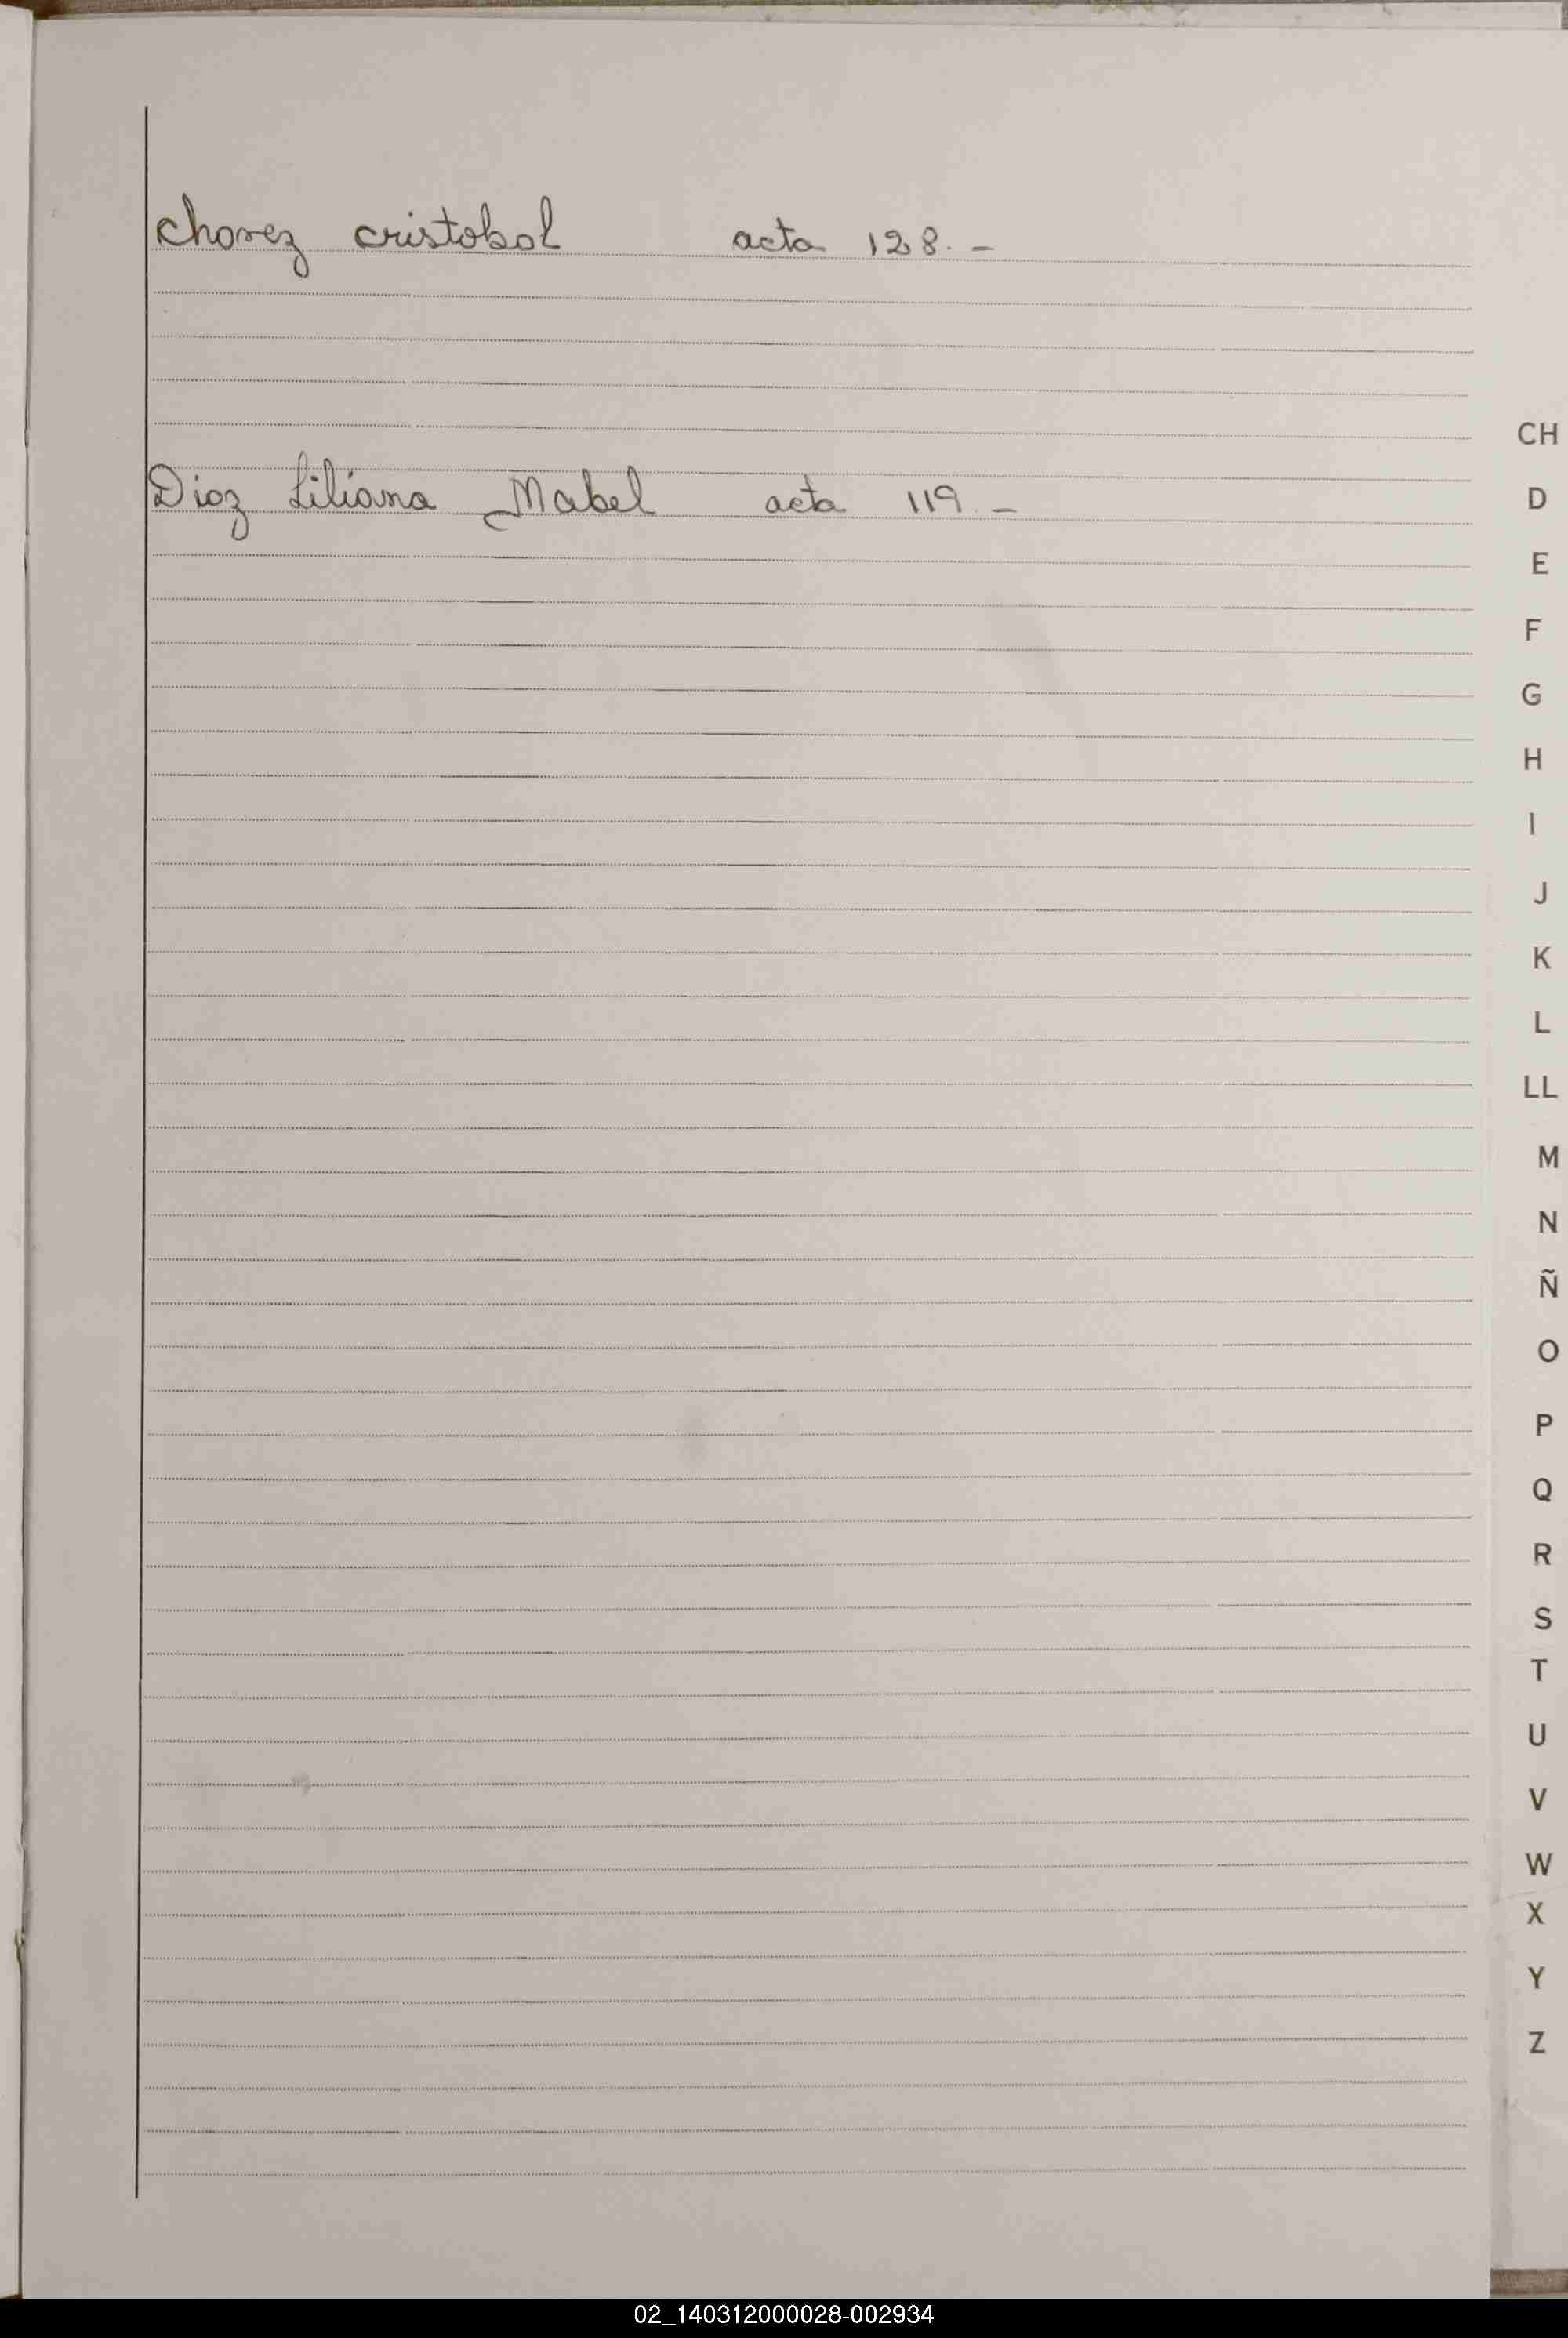 Chavez cristobal acta 128.-
Diaz Liliana Mabel acta 119.-
CH
D
E
F
G
H
I
J
K
L
LL
M
N
Ñ
O
P
Q
R
S
T
U
V
W
X
Y
Z
02_140312000028-002934